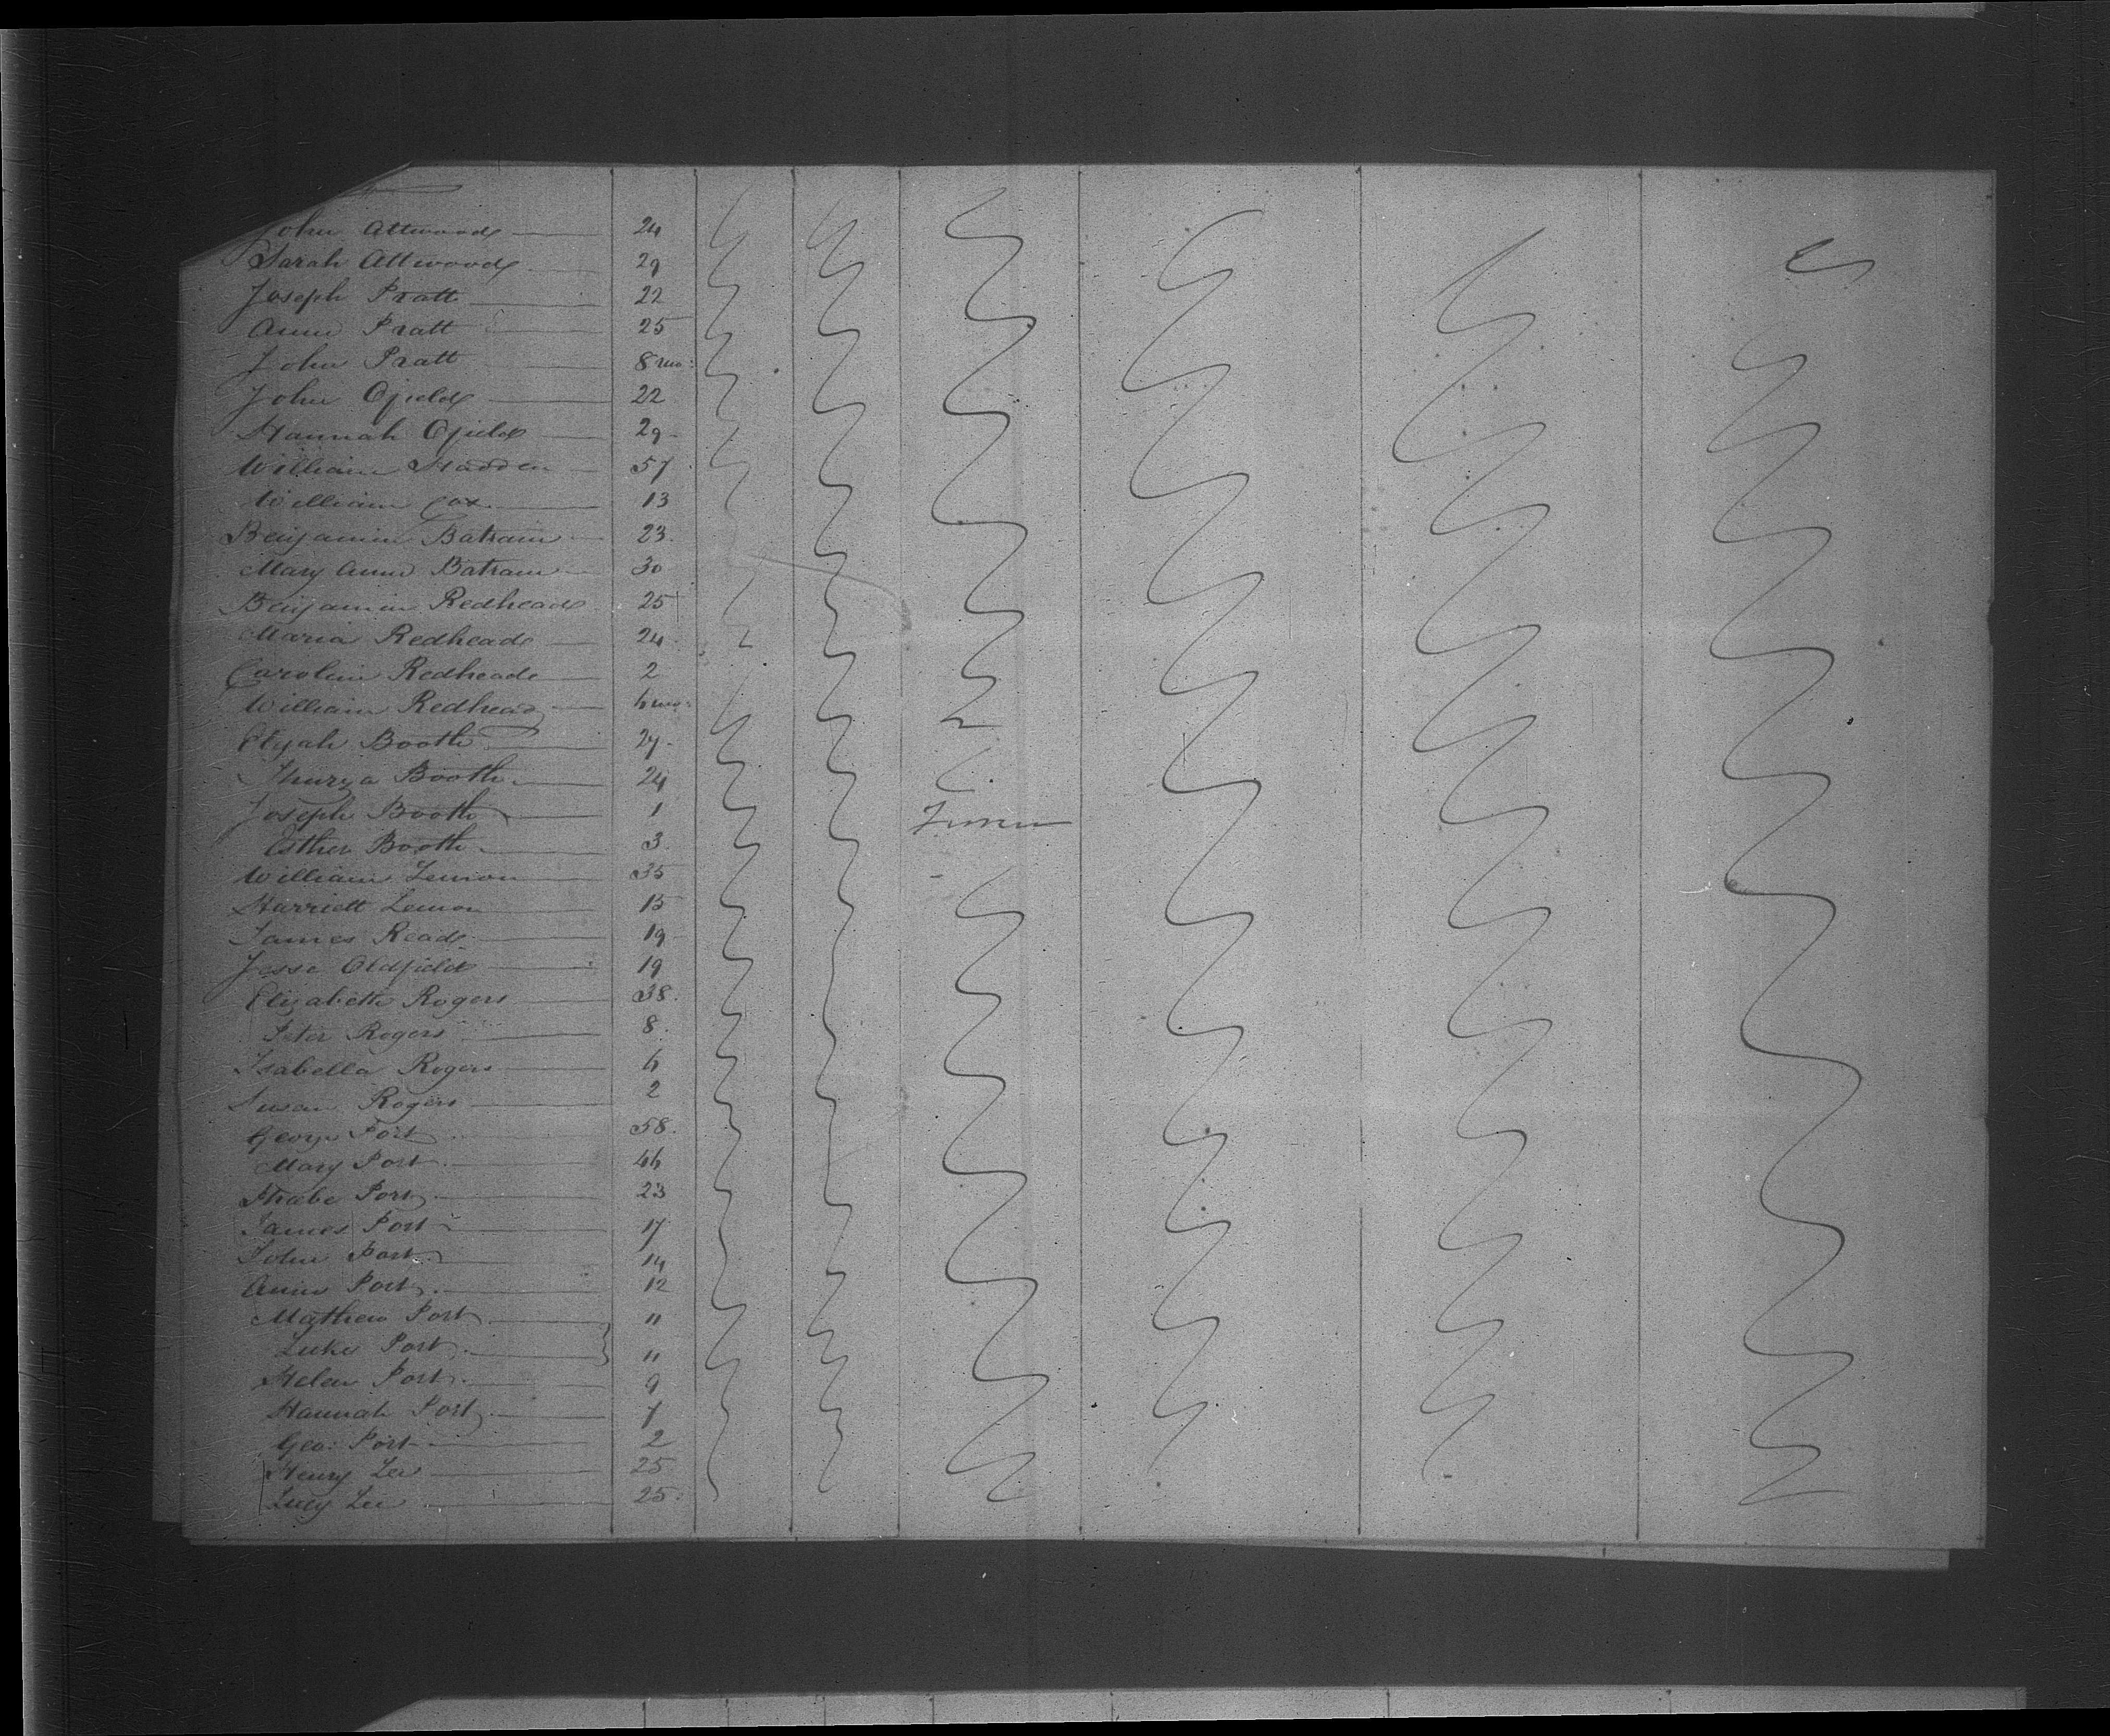 John Attwood 24
Sarah Attwood 29
Joseph Pratt 22
Anne Pratt 25
John Pratt 8 mo:
John Ofield 22
Hannah Ofield 29
William Hadden 57
William Cox 13
Benjamin Batram 23
Mary Anne Batram 30
Benjamin Redhead 25
Maria Redhead 24
Carolin Redhead 2
William Redhead 6 mo:
Elijah Booth 27
Thurza Booth 24
Joseph Booth 1
Esther Booth 3
William Lemon 35
Harriett Lemon 15
James Read 19
Jesse Oldfield 19
Elizabeth Rogers 38
Peter Rogers 8
Isabella Rogers 6
Susan Rogers 2
George Port 58
Mary Port 46
Phœbe Port 23
James Port 17
John Port 14
Anne Port 12
Mathew Port 11
Luke Port 11
Helen Port 9
Hannah Port 7
Geo: Port 2
Henry Lee 25
Lucy Lee 25